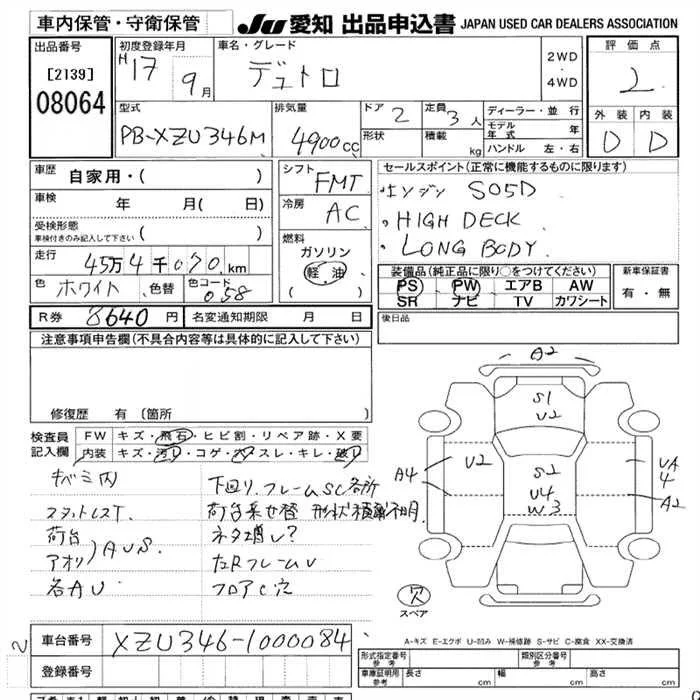 車内保管・守衛保管
JU 愛知 出品申込書 JAPAN USED CAR DEALERS ASSOCIATION
出品番号
[2139]
08064
初度登録年月
H 17 9月
車名・グレード
デュトロ
2WD
・
4WD
評価点
2
外装 内装
D D
型式
PB-XZU346M
排気量
4900cc
ドア 2
形状
定員 3人
積載 kg
ディーラー・並行
モデル年式 年
ハンドル 左・右
車歴 自家用・( )
車検 年 月( 日)
受検形態
車検付きのみ記入して下さい ( )
走行 45万4千070km
色 ホワイト 色替 色コード 058
シフト
FMT
冷房
AC
燃料
ガソリン
軽油
( )
セールスポイント(正常に機能するものに限ります)
・エンジン S05D
・HIGH DECK
・LONG BODY
装備品(純正品に限り○をつけてください)
PS PW エアB AW
SR ナビ TV カワシート
新車保証書
有・無
R券 8640円 名変通知期限 月 日
後日品
注意事項申告欄(不具合内容等は具体的に記入して下さい)
修復歴 有(箇所 )
検査員
記入欄
FW キズ・飛石・ヒビ割・リペア跡・X要
内装 キズ・汚レ・コゲ・穴・スレ・キレ・破レ
キャビ内
スタットレスT
荷台
アオリ)AUS
各AU
下回り、フレームSC各所
荷台乗せ替 形状積載不明
ネタ増し?
左RフレームU
フロアC穴
A2
S1
U2
U2
S2
U4
W3
A4
UA
4
A2
欠
スペア
A-キズ E-エクボ U-凹み W-補修跡 S-サビ C-腐食 XX-交換済
車台番号 XZU346-1000084
登録番号
型式指定番号
参考
類別区分番号
参考
車庫証明用
参考
長さ cm 幅 cm 高さ cm